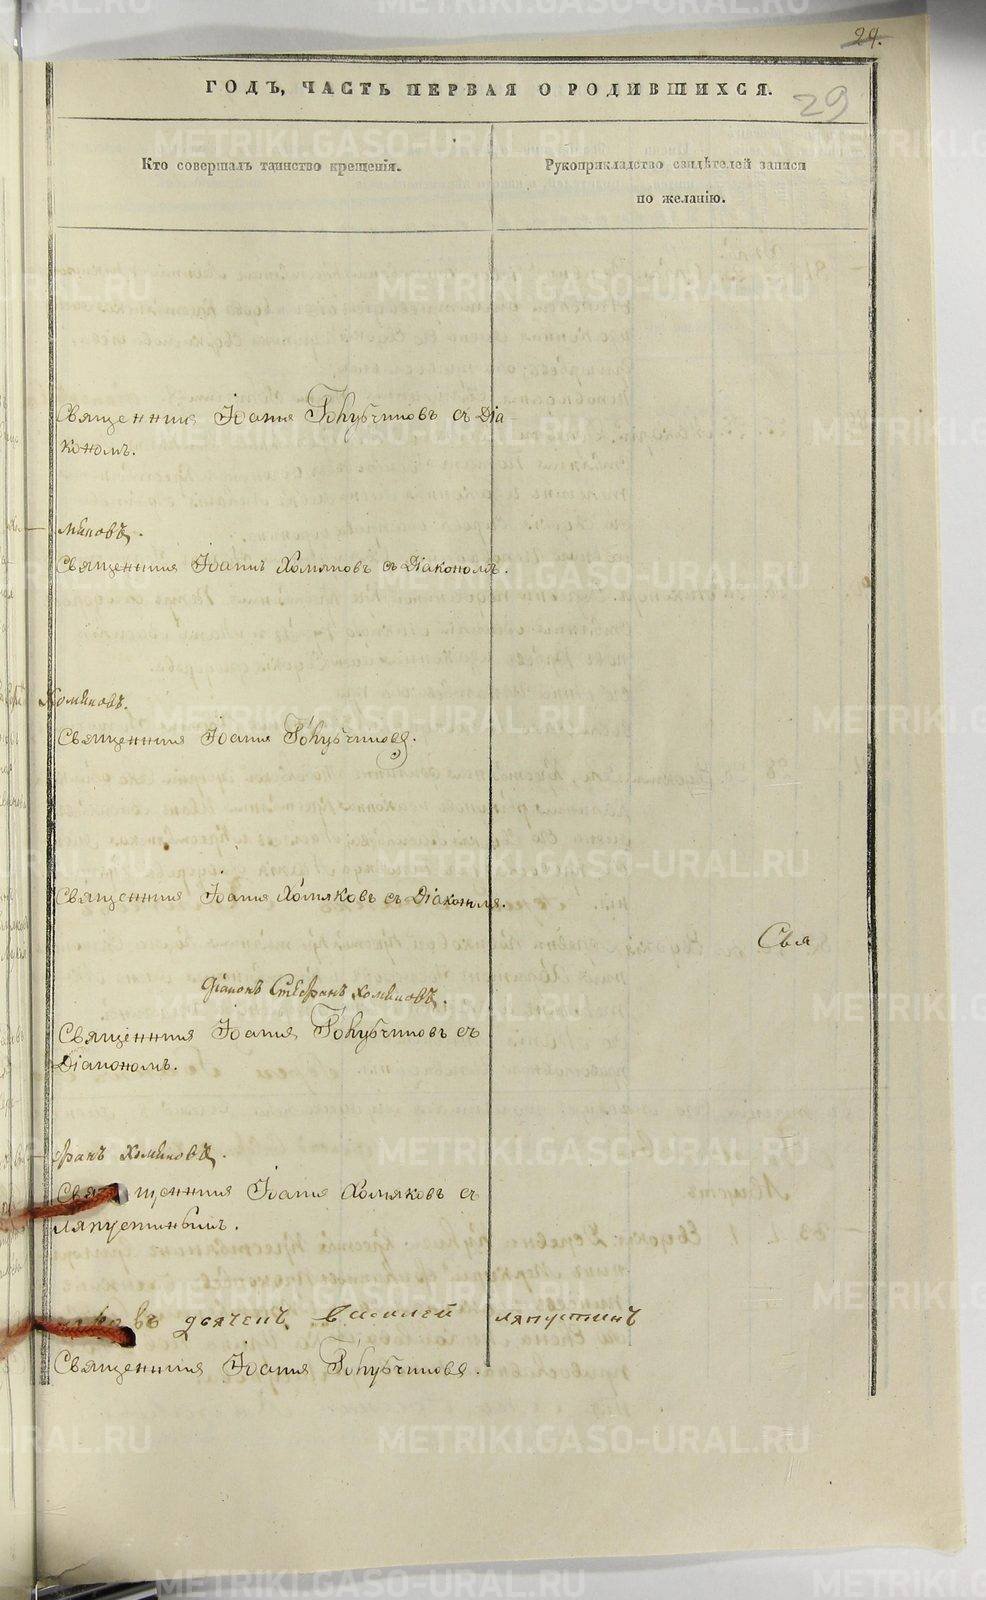 29.
29
ГОДЪ, ЧАСТЬ ПЕРВАЯ О РОДИВШИХСЯ.
Кто совершалъ таинство крещенія.
Рукоприкладство свидѣтелей записи
по желанію.
Священникъ Іоаннъ Голубчиковъ съ Діа-
кономъ.
мяковъ.
Священникъ Іоаннъ Хомяковъ съ Діакономъ.
Хомяковъ.
Священникъ Іоаннъ Голубчиковъ.
Священникъ Іоаннъ Хомяковъ съ Діакономъ.
Свя
Діаконъ Стефанъ Хомяковъ.
Священникъ Іоаннъ Голубчиковъ съ
Діакономъ.
фанъ Хомяковъ.
Священникъ Іоаннъ Хомяковъ съ
Ляпустинымъ.
дьячекъ Василей Ляпустинъ
Священникъ Іоаннъ Голубчиковъ.
METRIKI.GASO-URAL.RU